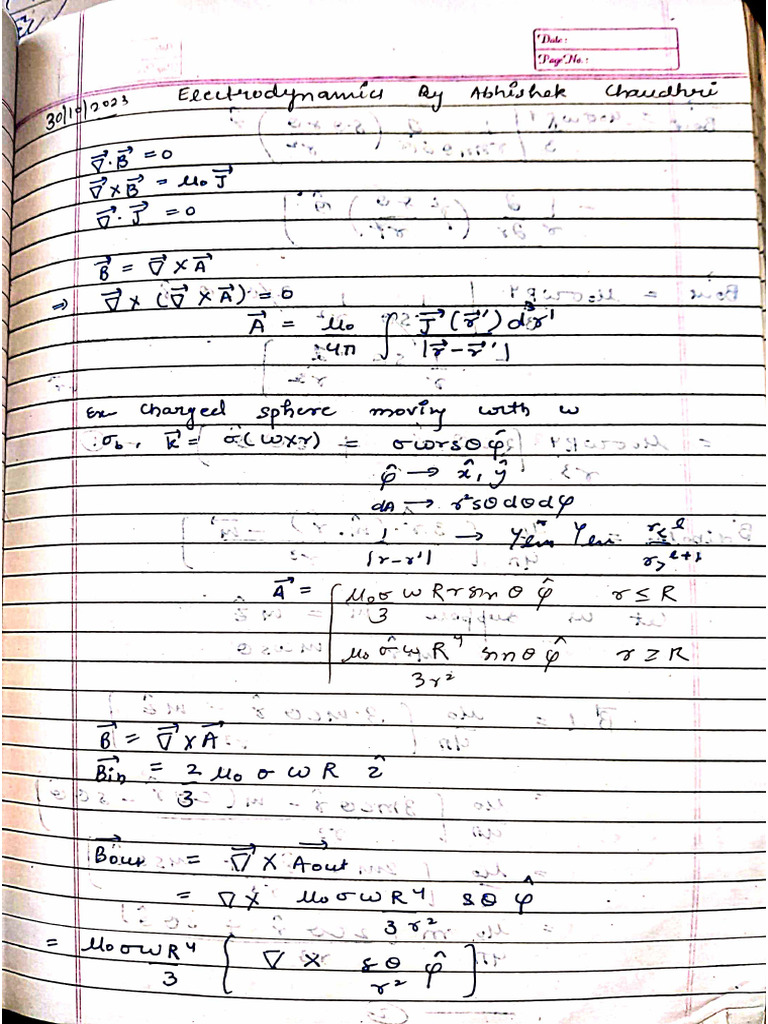 Date :
Page No. :
30/10/2023 Electrodynamics By Abhishek Chaudhri
∇⃗·B⃗ = 0
∇⃗×B⃗ = μ₀J⃗
∇⃗·J⃗ = 0
B⃗ = ∇⃗×A⃗
⇒ ∇⃗×(∇⃗×A⃗) = 0
A⃗ = μ₀/4π ∫ J⃗(r⃗')d³r' / |r⃗-r⃗'|
Ex- Charged sphere moving with ω
σ₀, K⃗ = σ(ω×r) = σωrsθφ̂
φ̂ → x̂, ŷ
dA → r²sθdθdφ
1/|r-r'| → Yₗₘ* Yₗₘ r<^l / r>^(l+1)
A⃗ = { μ₀σωRr sinθ φ̂ / 3 r ≤ R
μ₀σωR⁴ sinθ φ̂ / 3r² r ≥ R
B⃗ = ∇⃗×A⃗
B⃗in = 2/3 μ₀ σ ω R ẑ
B⃗out = ∇⃗ × A⃗out
= ∇ × μ₀σωR⁴ / 3r² sθ φ̂
= μ₀σωR⁴ / 3 [ ∇ × sθ / r² φ̂ ]